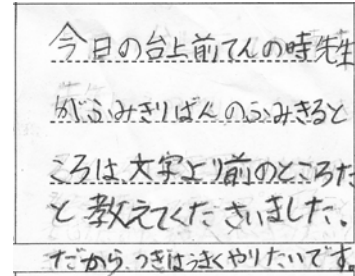 今日の台上前てんの時先生
がふみきりばんのふみきると
ころは、文字より前のところだ
と教えてくださいました。
だから、つぎはうまくやりたいです。